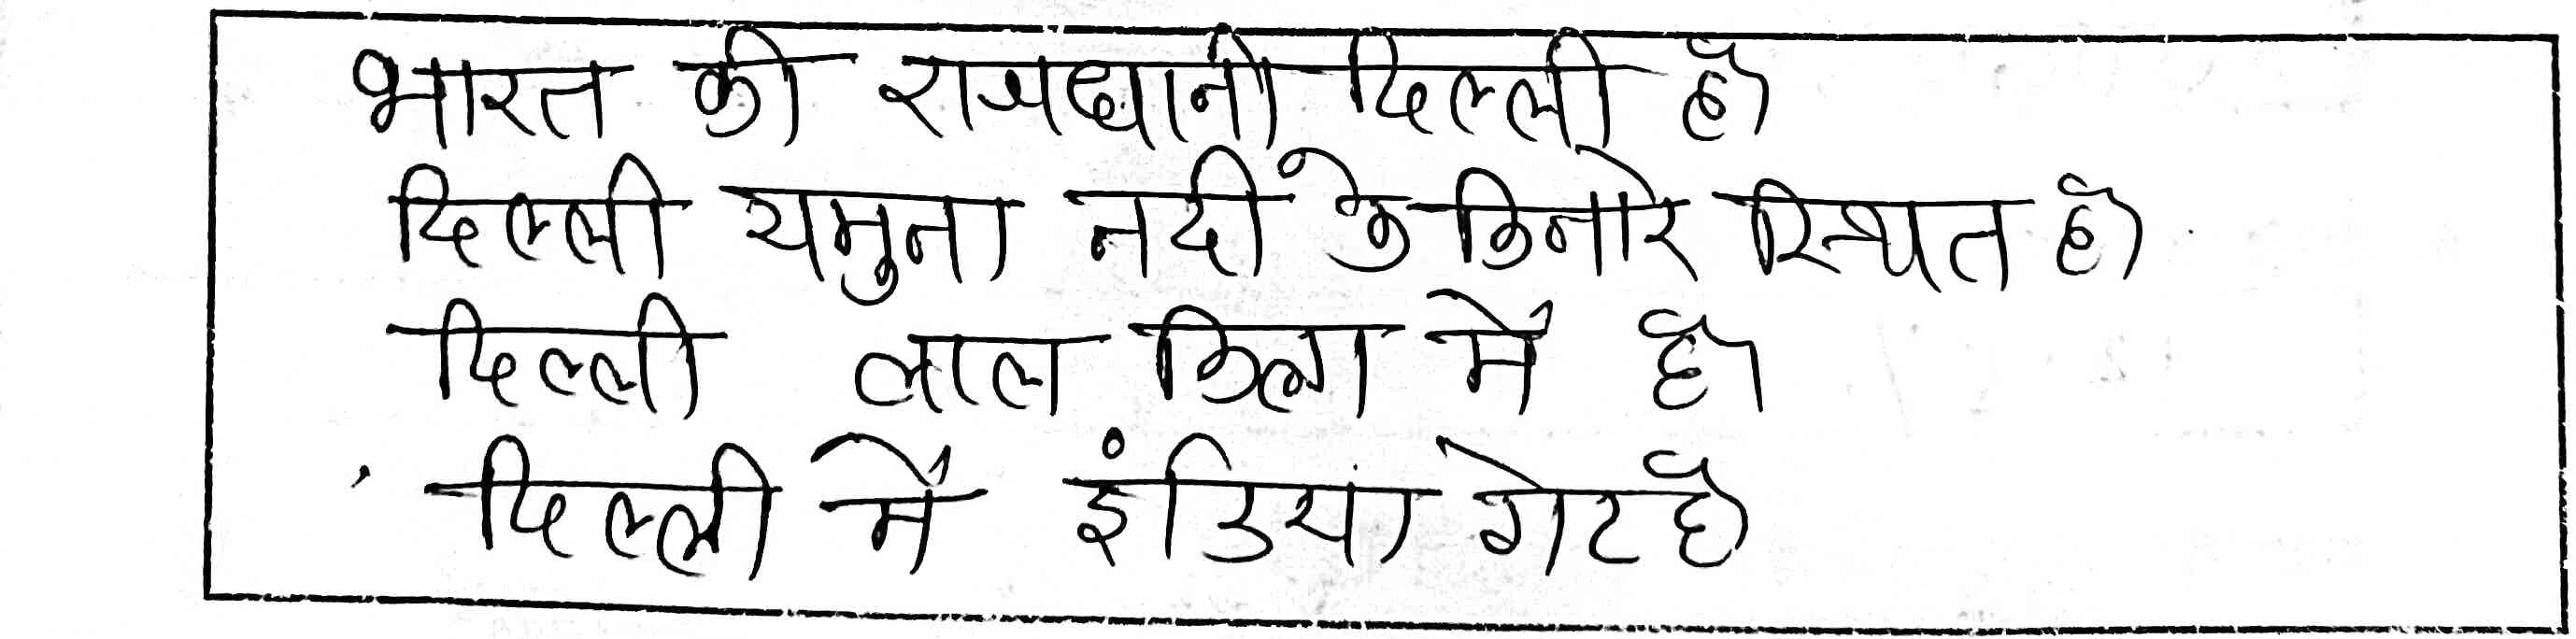 भारत की राजधानी दिल्ली है।
दिल्ली यमुना नदी के किनारे स्थित है।
दिल्ली लाल किला में है।
दिल्ली में इंडिया गेट है।